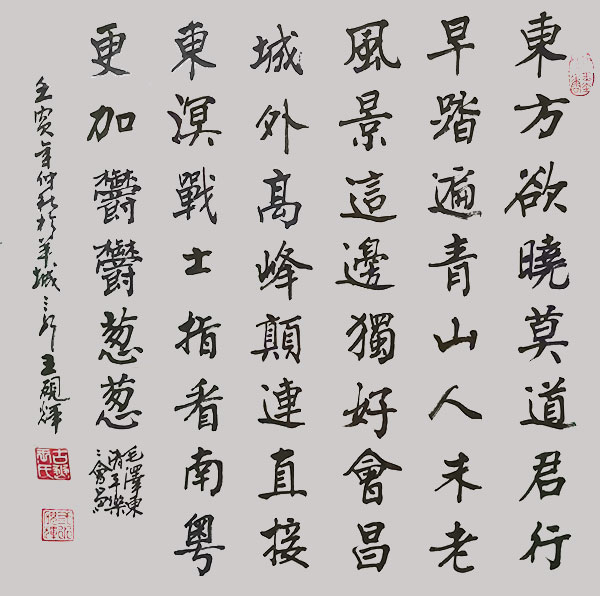 東方欲曉莫道君行
早踏遍青山人未老
風景這邊獨好會昌
城外高峰顛連直接
東溟戰士指看南粵
更加鬱鬱葱葱
毛澤東
清平樂
之會昌
壬寅年仲秋於羊城王硯輝